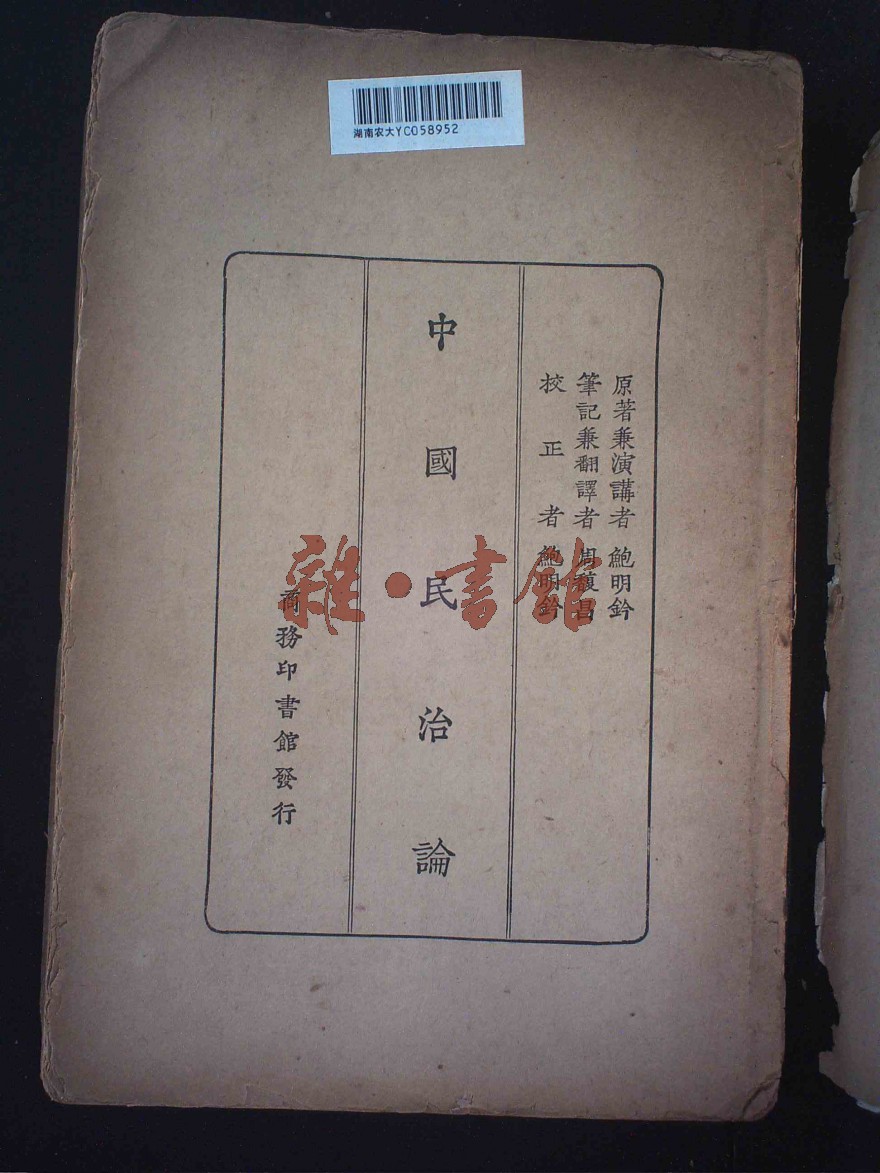 湖南农大YC058952
原著兼演講者 鮑明鈐
筆記兼翻譯者 周馥昌
校正者 鮑明鈐
中國民治論
商務印書館發行
雜·書館